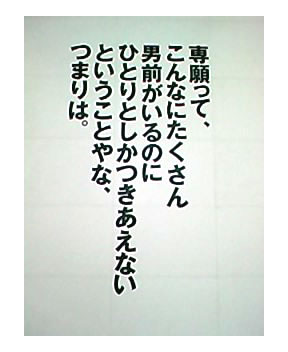 専願って、
こんなにたくさん
男前がいるのに
ひとりとしかつきあえない
ということやな、
つまりは。